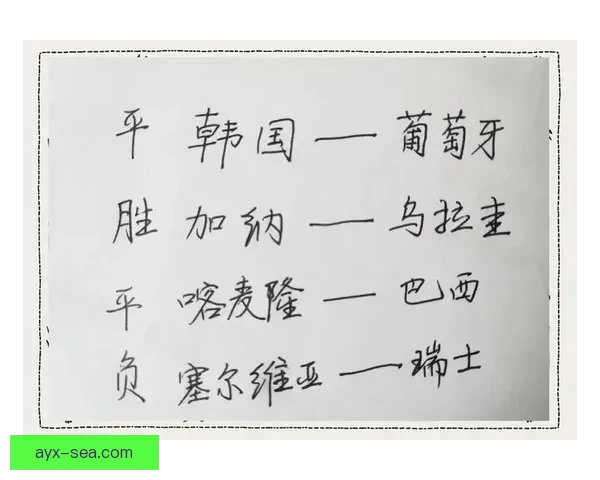 平 韩国 — 葡萄牙
胜 加纳 — 乌拉圭
平 喀麦隆 — 巴西
负 塞尔维亚 — 瑞士
ayx-sea.com